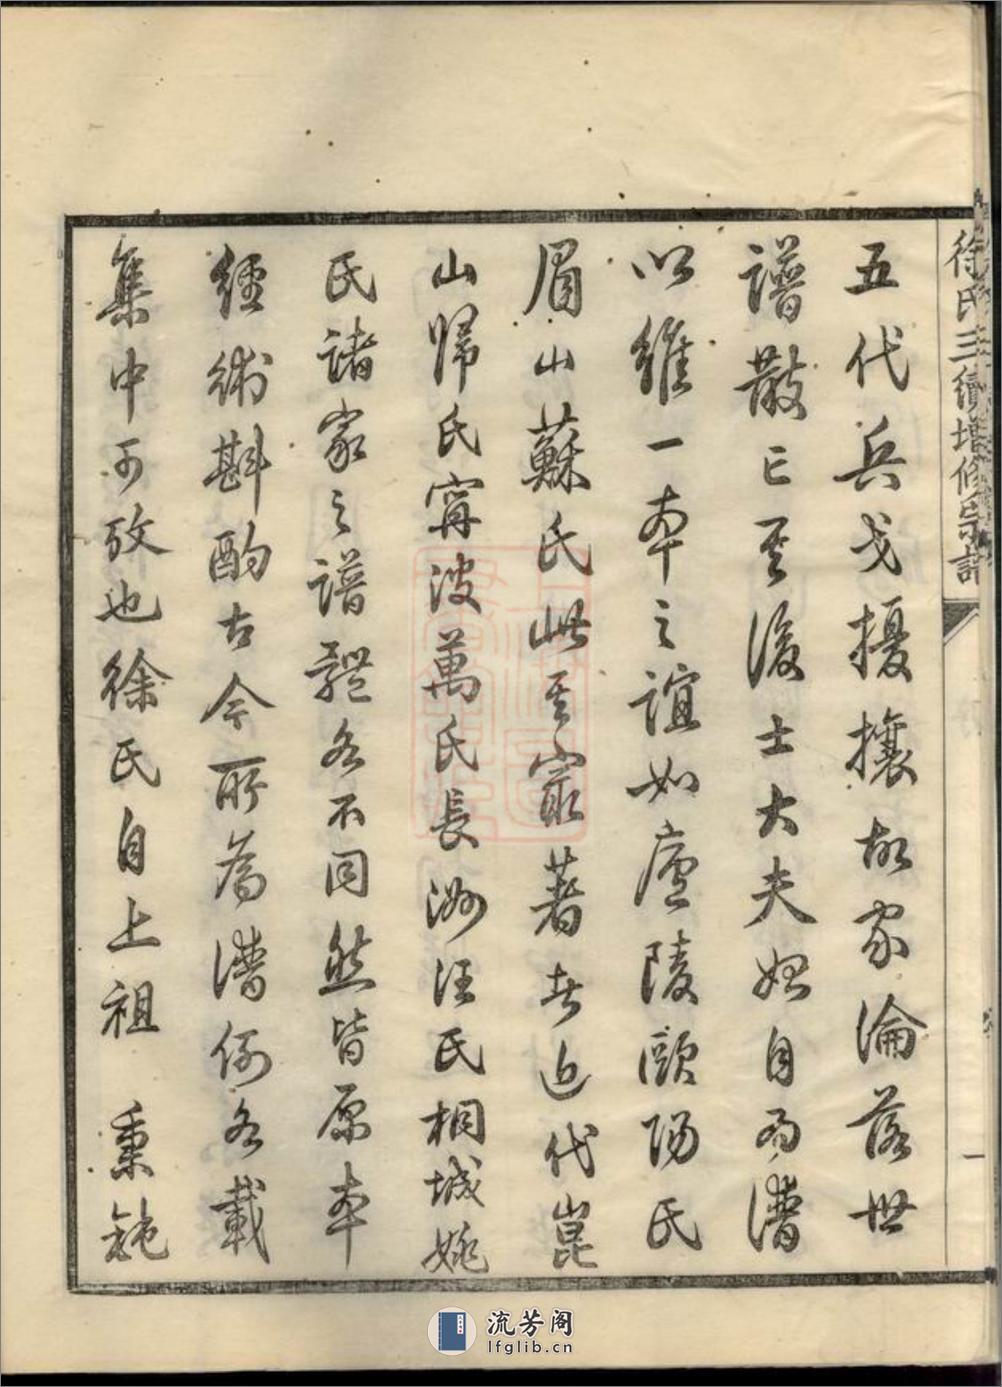 徐氏三續增修宗譜
一
五代兵戈擾攘故家淪落世
譜散亡至後士大夫始自為譜
以維一本之誼如廬陵歐陽氏
眉山蘇氏此其最著者近代崑
山歸氏甯波萬氏長洲汪氏桐城姚
氏諸家之譜體各不同然皆原本
經術斟酌古今所為譜例各載
集中可攷也徐氏自上祖 秉鈍
流芳阁
lfglib.cn